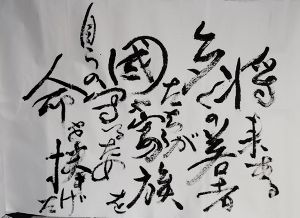 将来ある
多くの若者
たちが家族
國を
自らの守るため
命を捧げた